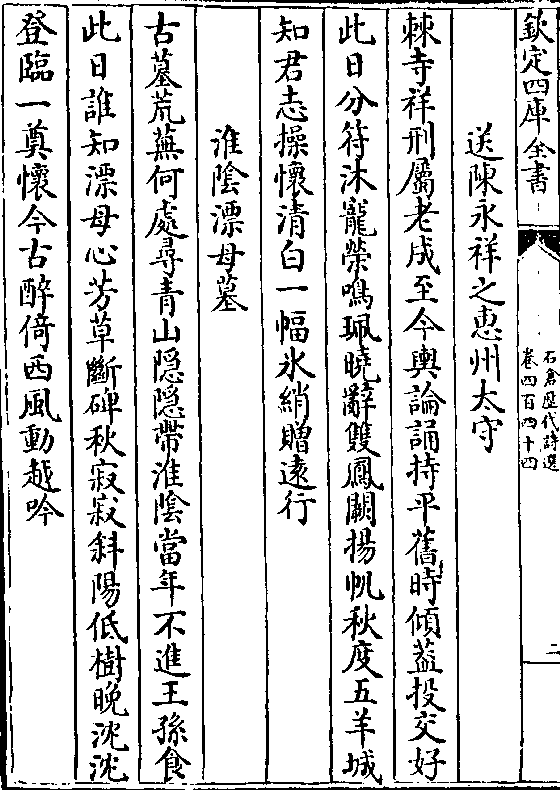 欽定四庫全書
石倉歷代詩選
卷四百四十四
二
送陳永祥之惠州太守
棘寺祥刑屬老成至今輿論誦持平舊時傾蓋投交好
此日分符沐寵榮鳴珮曉辭雙鳳闕揚帆秋度五羊城
知君志操懷清白一幅氷綃贈逺行
淮陰漂母墓
古墓荒蕪何處尋青山隠隠帶淮陰當年不進王孫食
此日誰知漂母心芳草斷碑秋寂寂斜陽低樹晚沈沈
登臨一奠懷今古醉倚西風動越吟